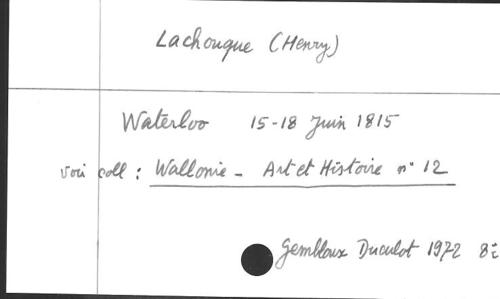 Lachouque (Henry)
Waterloo 15-18 Juin 1815
voir coll : Wallonie - Art et Histoire n° 12
Gembloux Duculot 1972 8°